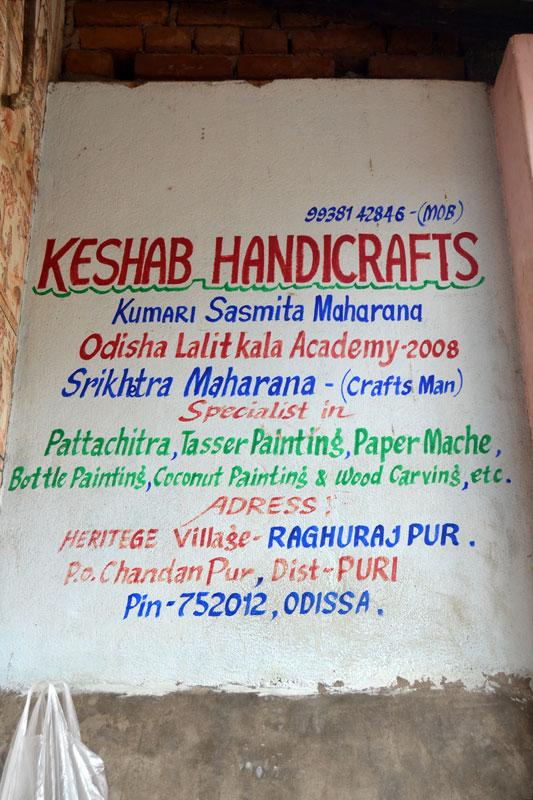 99381 42846-(MOB)
KESHAB HANDICRAFTS
Kumari Sasmita Maharana
Odisha Lalit kala Academy-2008
Srikhetra Maharana - (Crafts Man)
Specialist in
Pattachitra, Tasser Painting, Paper Mache,
Bottle Painting, Coconut Painting & Wood Carving, etc.
ADRESS:
HERITEGE Village- RAGHURAJPUR.
P.o. Chandan Pur, Dist-PURI
Pin-752012, ODISSA.